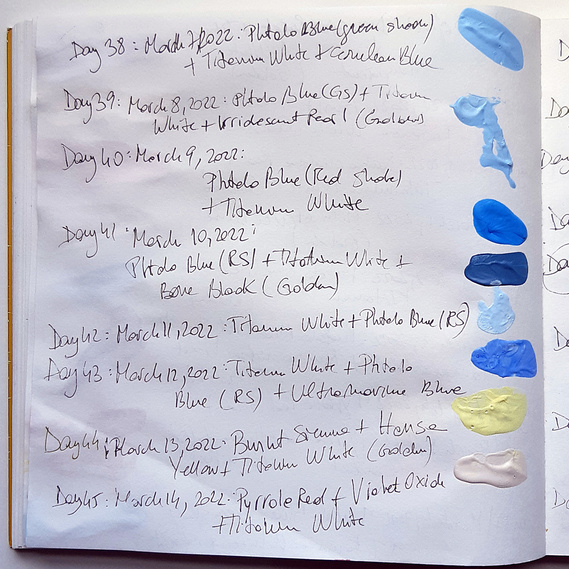 Day 38: March 7, 2022: Phtalo Blue (green shade)
+ Titanium White + Cerulean Blue
Day 39: March 8, 2022: Phtalo Blue (GS) + Titanium
White + Irridescent Pearl (Golden)
Day 40: March 9, 2022:
Phtalo Blue (Red Shade)
+ Titanium White
Day 41: March 10, 2022:
Phtalo Blue (RS) + Titanium White +
Bone Black (Golden)
Day 42: March 11, 2022: Titanium White + Phtalo Blue (RS)
Day 43: March 12, 2022: Titanium White + Phtalo
Blue (RS) + Ultramarine Blue
Day 44: March 13, 2022: Burnt Sienna + Hansa
Yellow + Titanium White (Golden)
Day 45: March 14, 2022: Pyrrole Red + Violet Oxide
+ Titanium White